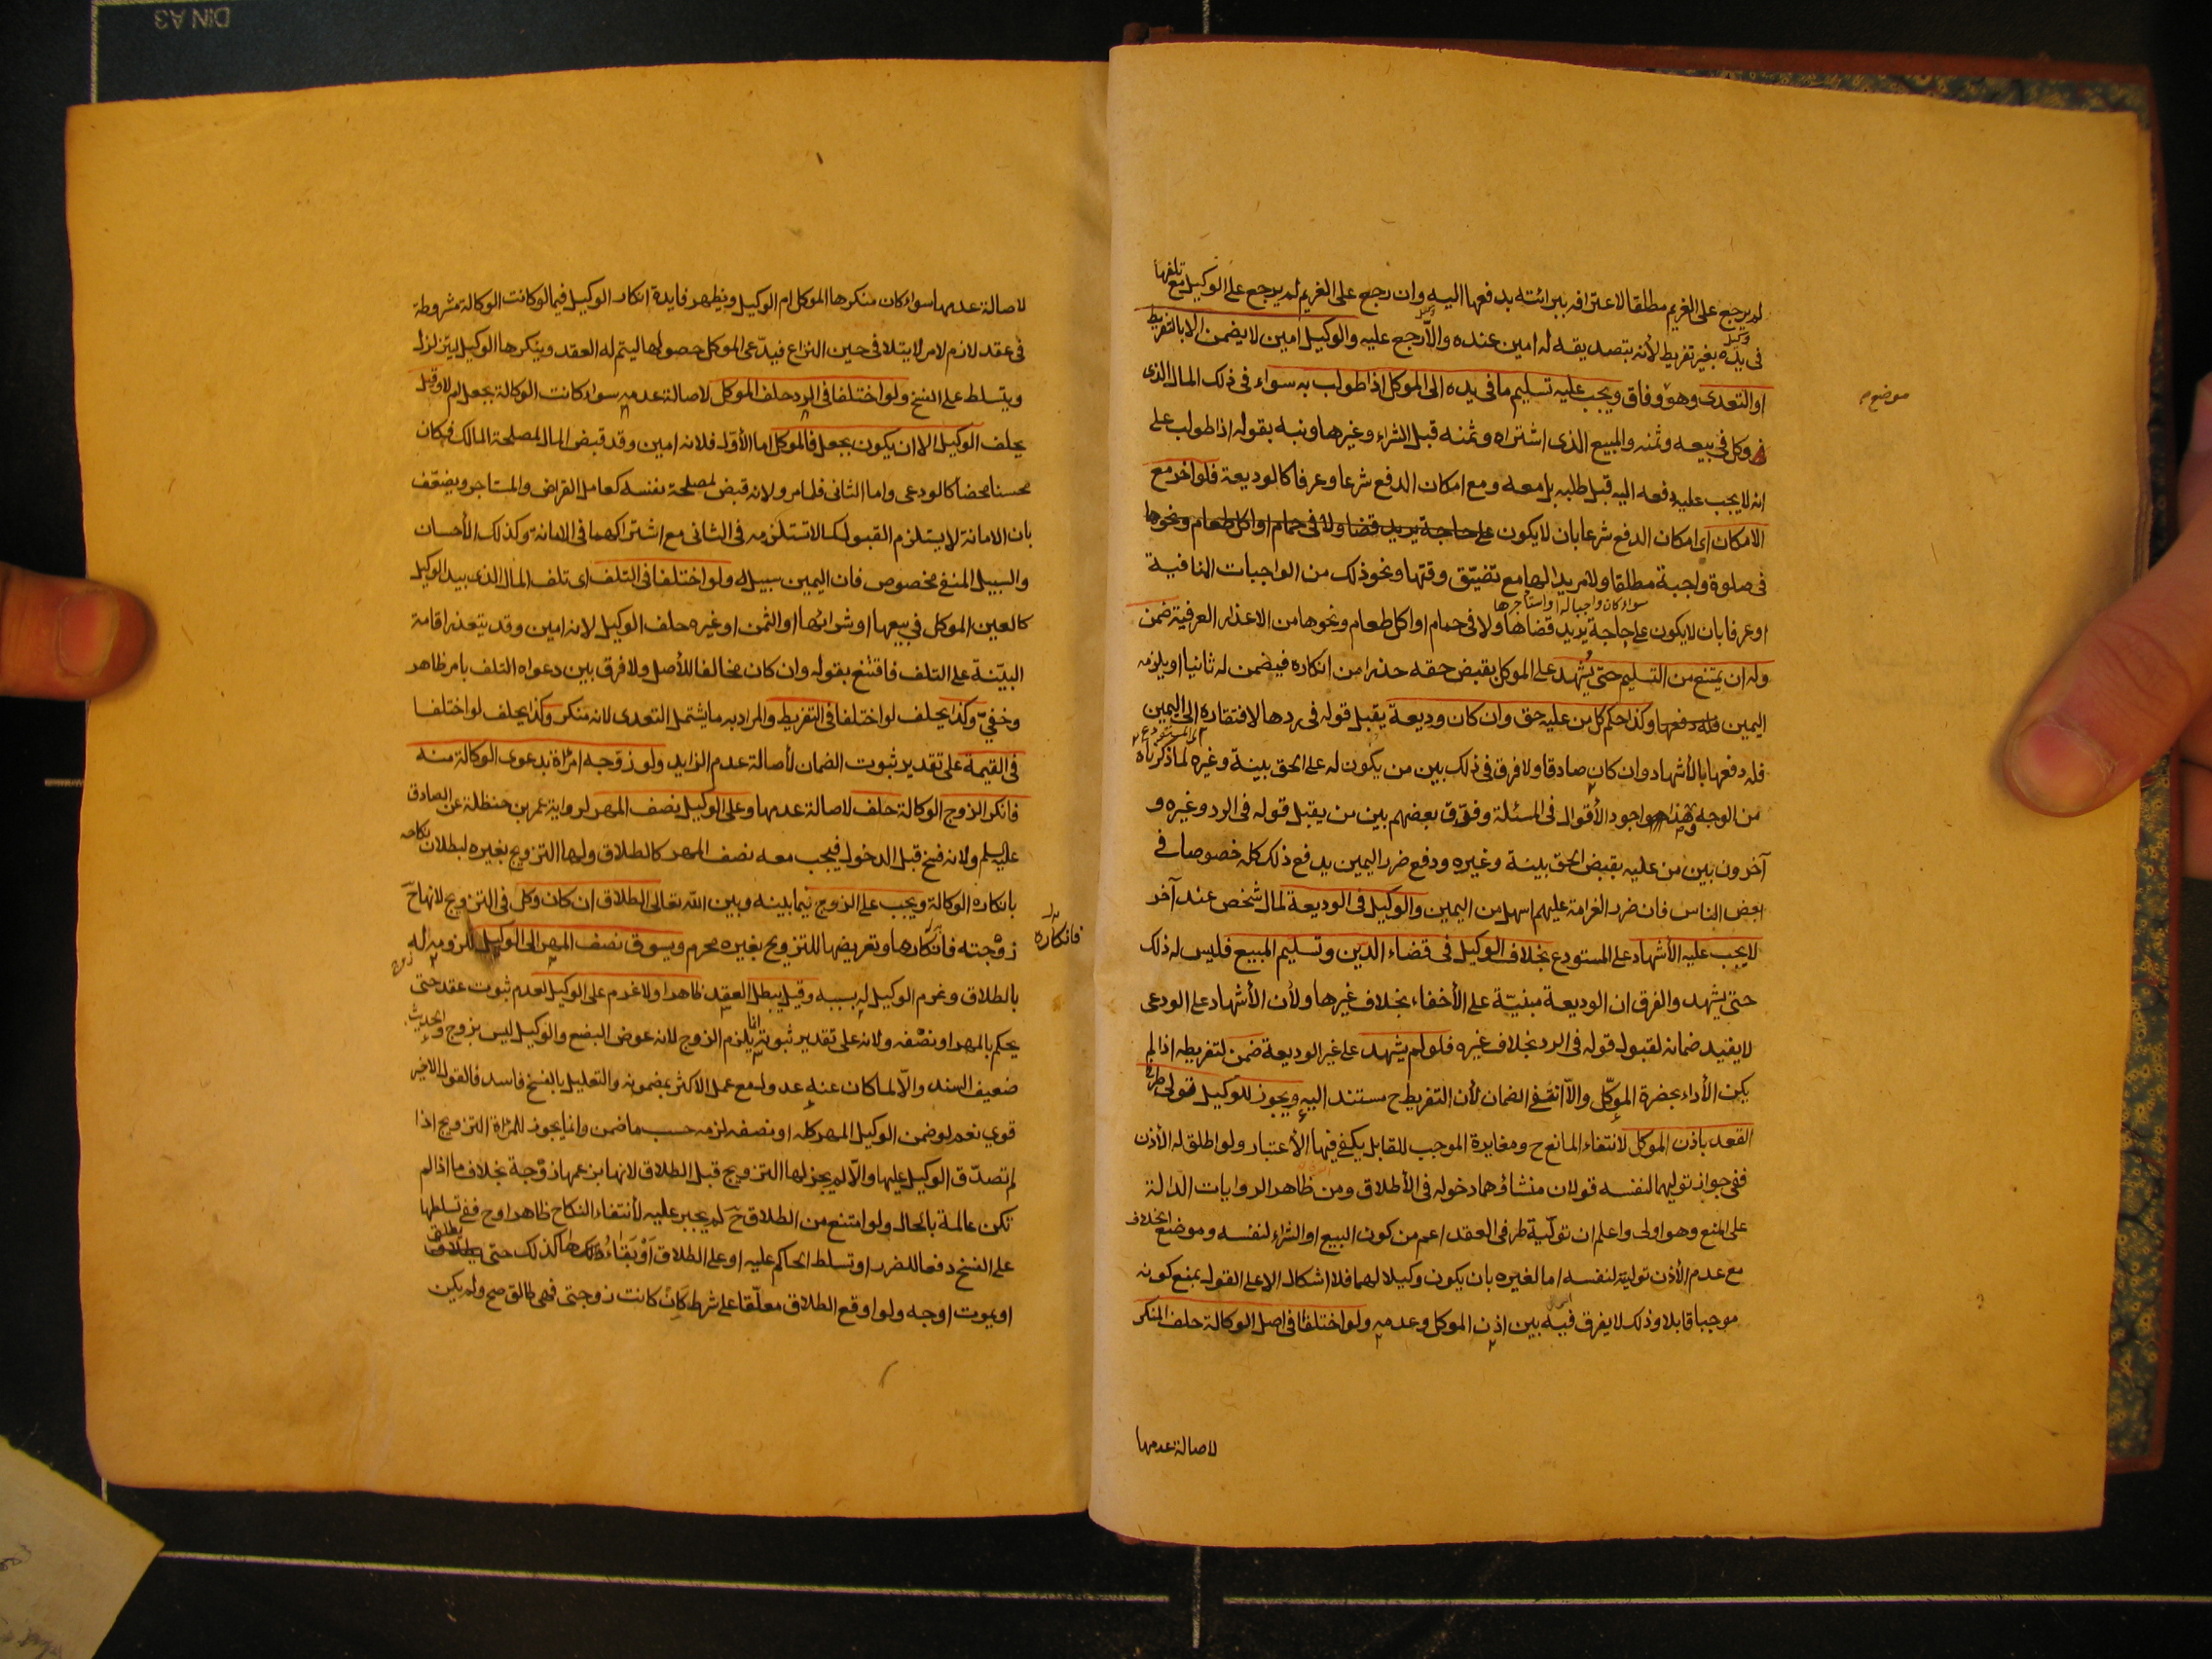 لم يرجع على الغريم مطلقا لاعترافه ببرائته بدفعها اليه وان رجع على الغريم لم يرجع على الوكيل مع تلفها
فى يده بغير تفريط لأنه بتصديقه له امين عنده والّا رجع عليه والوكيل امين لا يضمن الا بالتفريط
او التعدى وهو وفاق ويجب عليه تسليم ما فى يده الى الموكل اذا طولب به سواء فى ذلك المال الذى
وكل فى بيعه وثمنه والمبيع الذى اشتراه وثمنه قبل الشراء وغيرها ونبه بقوله اذا طولب على
انه لا يجب عليه دفعه اليه قبل طلبه بل معه ومع امكان الدفع شرعا وعرفا كالوديعة فلو اخر مع
الامكان اى امكان الدفع شرعا بان لا يكون على حاجة يريد قضا ولا فى حمام او اكل طعام ونحوها
فى صلوة واجبة مطلقا ولا مريدا لها مع تضيّق وقتها ونحو ذلك من الواجبات النافية
او عرفا بان لا يكون على حاجة يريد قضاها ولا فى حمام او اكل طعام ونحوها من الاعذار العرفية ضمن
وله ان يمتنع من التسليم حتى يُشهد على الموكل بقبض حقه حذرا من انكاره فيضمن له ثانيا او يلزمه
اليمين فله دفعها وكذا حكم كل من عليه حق وان كان وديعة يقبل قوله فى ردها لافتقاره الى اليمين
فله دفعها بالأشهاد وان كان صادقا ولا فرق فى ذلك بين من يكون له على الحق بينة وغيره لما ذكرناه
من الوجه وهذا هو اجود الأقوال فى المسئلة وفرّق بعضهم بين من يقبل قوله فى الرد وغيره و
آخرون بين من عليه بقبض الحق بينة وغيره ودفع ضرر اليمين يدفع ذلك كله خصوصا فى
بعض الناس فان ضرر الغرامة عليهم اسهل من اليمين والوكيل فى الوديعة لمال شخص عند آخر
لا يجب عليه الأشهاد على المستودع بخلاف الوكيل فى قضاء الدّين وتسليم المبيع فليس له ذلك
حتى يشهد والفرق ان الوديعة مبنيّة على الأخفاء بخلاف غيرها ولأن الأشهاد على الودعى
لا يفيد ضمانه لقبول قوله فى الرد بخلاف غيره فلو لم يشهد على غير الوديعة ضمن لتفريطه اذا لم
يكن الأداء بحضرة الموكّل والّا انتفى الضمان لأن التفريط ح مستند اليه ويجوز للوكيل تولى طرفى
القعد باذن الموكل لانتفاء المانع ح ومغايرة الموجب للقابل يكفى فيها الأعتبار ولو اطلق له الأذن
ففى جواز توليهما لنفسه قولان منشاؤهما دخوله فى الأطلاق ومن ظاهر الروايات الدالة
على المنع وهو اولى واعلم ان توليّة طرفى العقد اعم من كون البيع او الشراء لنفسه وموضع الخلاف
مع عدم الأذن توليته لنفسه اما لغيره بان يكون وكيلا لهما فلا اشكال الا على القول بمنع كونه
موجبا قابلا وذلك لا يفرق فيه بين اذن الموكل وعدمه ولو اختلفا فى اصل الوكالة حلف المنكر
لاصالة عدمها
موضع م
وكيل
سواء كان واجبا له او استاجرها
لاصالة عدمها سواء كان منكرها الموكل ام الوكيل ويظهر فايدة انكار الوكيل فيما لو كانت الوكالة مشروطة
فى عقد لازم لامر لا يتلافى حين النزاع فيدّعى الموكل حصولها ليتم له العقد وينكرها الوكيل ليتزلزل
ويتسلط على الفسخ ولو اختلفا فى الرد حلف الموكل لاصالة عدمه سواء كانت الوكالة بجعل ام لا وقيل
يحلف الوكيل الا ان يكون بجعل فالموكل اما الأوّل فلانه امين وقد قبض المال لمصلحة المالك فكان
محسنا محضا كالودعى واما الثانى فلما مر ولانه قبض لمصلحة نفسه كعامل القراض والمستاجر ويضعّف
بان الامانة لا يستلزم القبول كما لا تستلزمه فى الثانى مع اشتراكهما فى الامانة وكذلك الأحسان
والسبيل المنفى مخصوص فان اليمين سبيل له ولو اختلفا فى التلف اى تلف المال الذى بيد الوكيل
كالعين الموكل فى بيعها او شرائها او الثمن او غيره حلف الوكيل لانه امين وقد يتعذر اقامة
البيّنة على التلف فاقتنع بقوله وان كان مخالفا للأصل ولا فرق بين دعواه التلف بامر ظاهر
وخفىّ وكذا يحلف لو اختلفا فى التفريط والمراد به ما يشتمل التعدى لانه منكر وكذا يحلف لو اختلفا
فى القيمة على تقدير ثبوت الضمان لأصالة عدم الزايد ولو زوّجه امرأة بدعوى الوكالة منه
فانكر الزوج الوكالة حلف لاصالة عدمها وعلى الوكيل نصف المهر لرواية عمر بن حنظلة عن الصادق
عليه السلم ولانه فسخ قبل الدخول فيجب معه نصف المهر كالطلاق ولها التزويج بغيره لبطلان نكاحه
بانكاره الوكالة ويجب على الزوج فيما بينه وبين الله تعالى الطلاق ان كان وكل فى التزويج لانها ح
زوجته فانكارها وتعريضها للتزويج بغيره محرم ويسوق نصف المهر الى الوكيل للزومه له
بالطلاق وغرم الوكيل له بسببه وقيل يبطل العقد ظاهرا ولا غرم على الوكيل لعدم ثبوت عقد حتى
يحكم بالمهر او نصفه ولانه على تقدير ثبوته انما يلزم الزوج لانه عوض البضع والوكيل ليس بزوج والحديث
ضعيف السند والّا لما كان عنه عدول مع عمل الاكثر بمضمونه والتعليل بالفسخ فاسد فالقول الاخير
قوي نعم لو ضمن الوكيل المهر كله او نصفه لزمه حسب ما ضمن وانما يجوز للمرأة التزويج اذا
لم تصدّق الوكيل عليها والّا لم يجز لها التزويج قبل الطلاق لانها بزعمها زوجة بخلاف ما اذا لم
تكن عالمة بالحال ولو امتنع من الطلاق ح لم يجبر عليه لأنتفاء النكاح ظاهرا وح ففى تسلطها
على الفسخ دفعا للضرر او تسلط الحاكم عليه او على الطلاق أو بَقاءُها كذلك حتى يطلق
او يموت اوجه ولو اوقع الطلاق معلّقا على شرط كَاِن كانت زوجتى فهى طالق صح ولم يكن
فانكاره